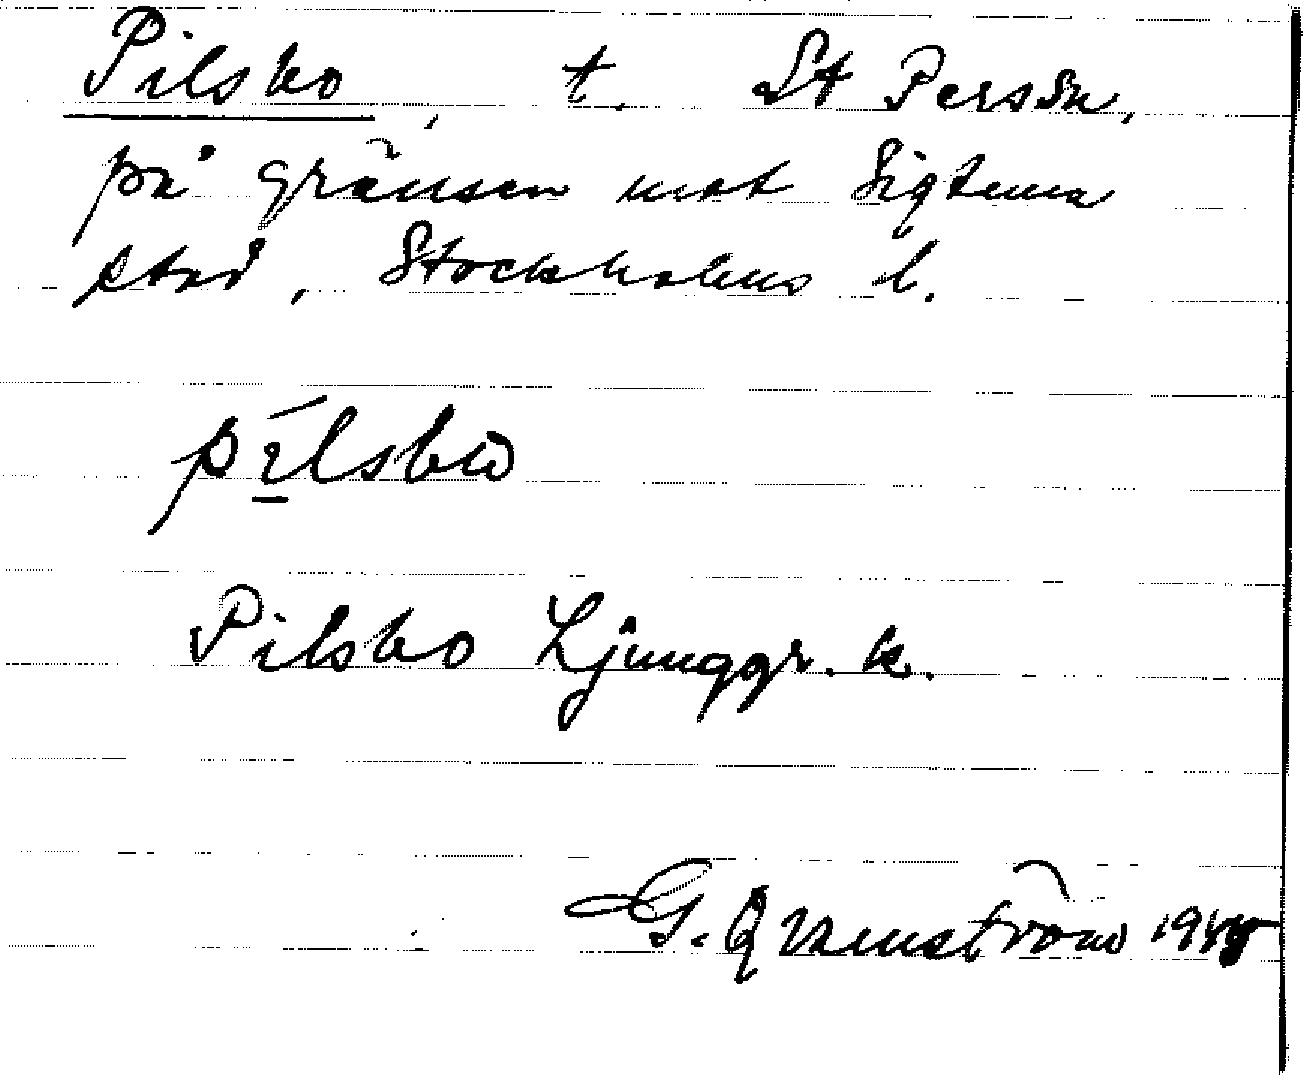 Pilsbo, t. St Persön,
på gränsen mot Sigtuna
stad, Stockholms l.
pílsbω
Pilsbo Ljunggr. k.
G. Qvarnström